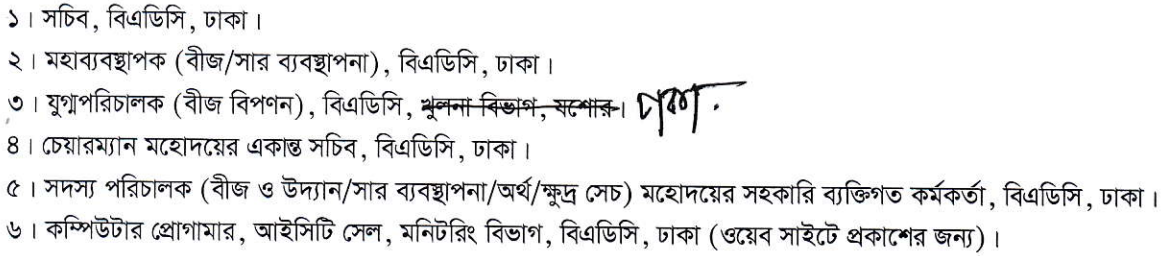 ১। সচিব, বিএডিসি, ঢাকা।
২। মহাব্যবস্থাপক (বীজ/সার ব্যবস্থাপনা), বিএডিসি, ঢাকা।
৩। যুগ্মপরিচালক (বীজ বিপণন), বিএডিসি, খুলনা বিভাগ, যশোর। ঢাকা.
৪। চেয়ারম্যান মহোদয়ের একান্ত সচিব, বিএডিসি, ঢাকা।
৫। সদস্য পরিচালক (বীজ ও উদ্যান/সার ব্যবস্থাপনা/অর্থ/ক্ষুদ্র সেচ) মহোদয়ের সহকারি ব্যক্তিগত কর্মকর্তা, বিএডিসি, ঢাকা।
৬। কম্পিউটার প্রোগামার, আইসিটি সেল, মনিটরিং বিভাগ, বিএডিসি, ঢাকা (ওয়েব সাইটে প্রকাশের জন্য)।